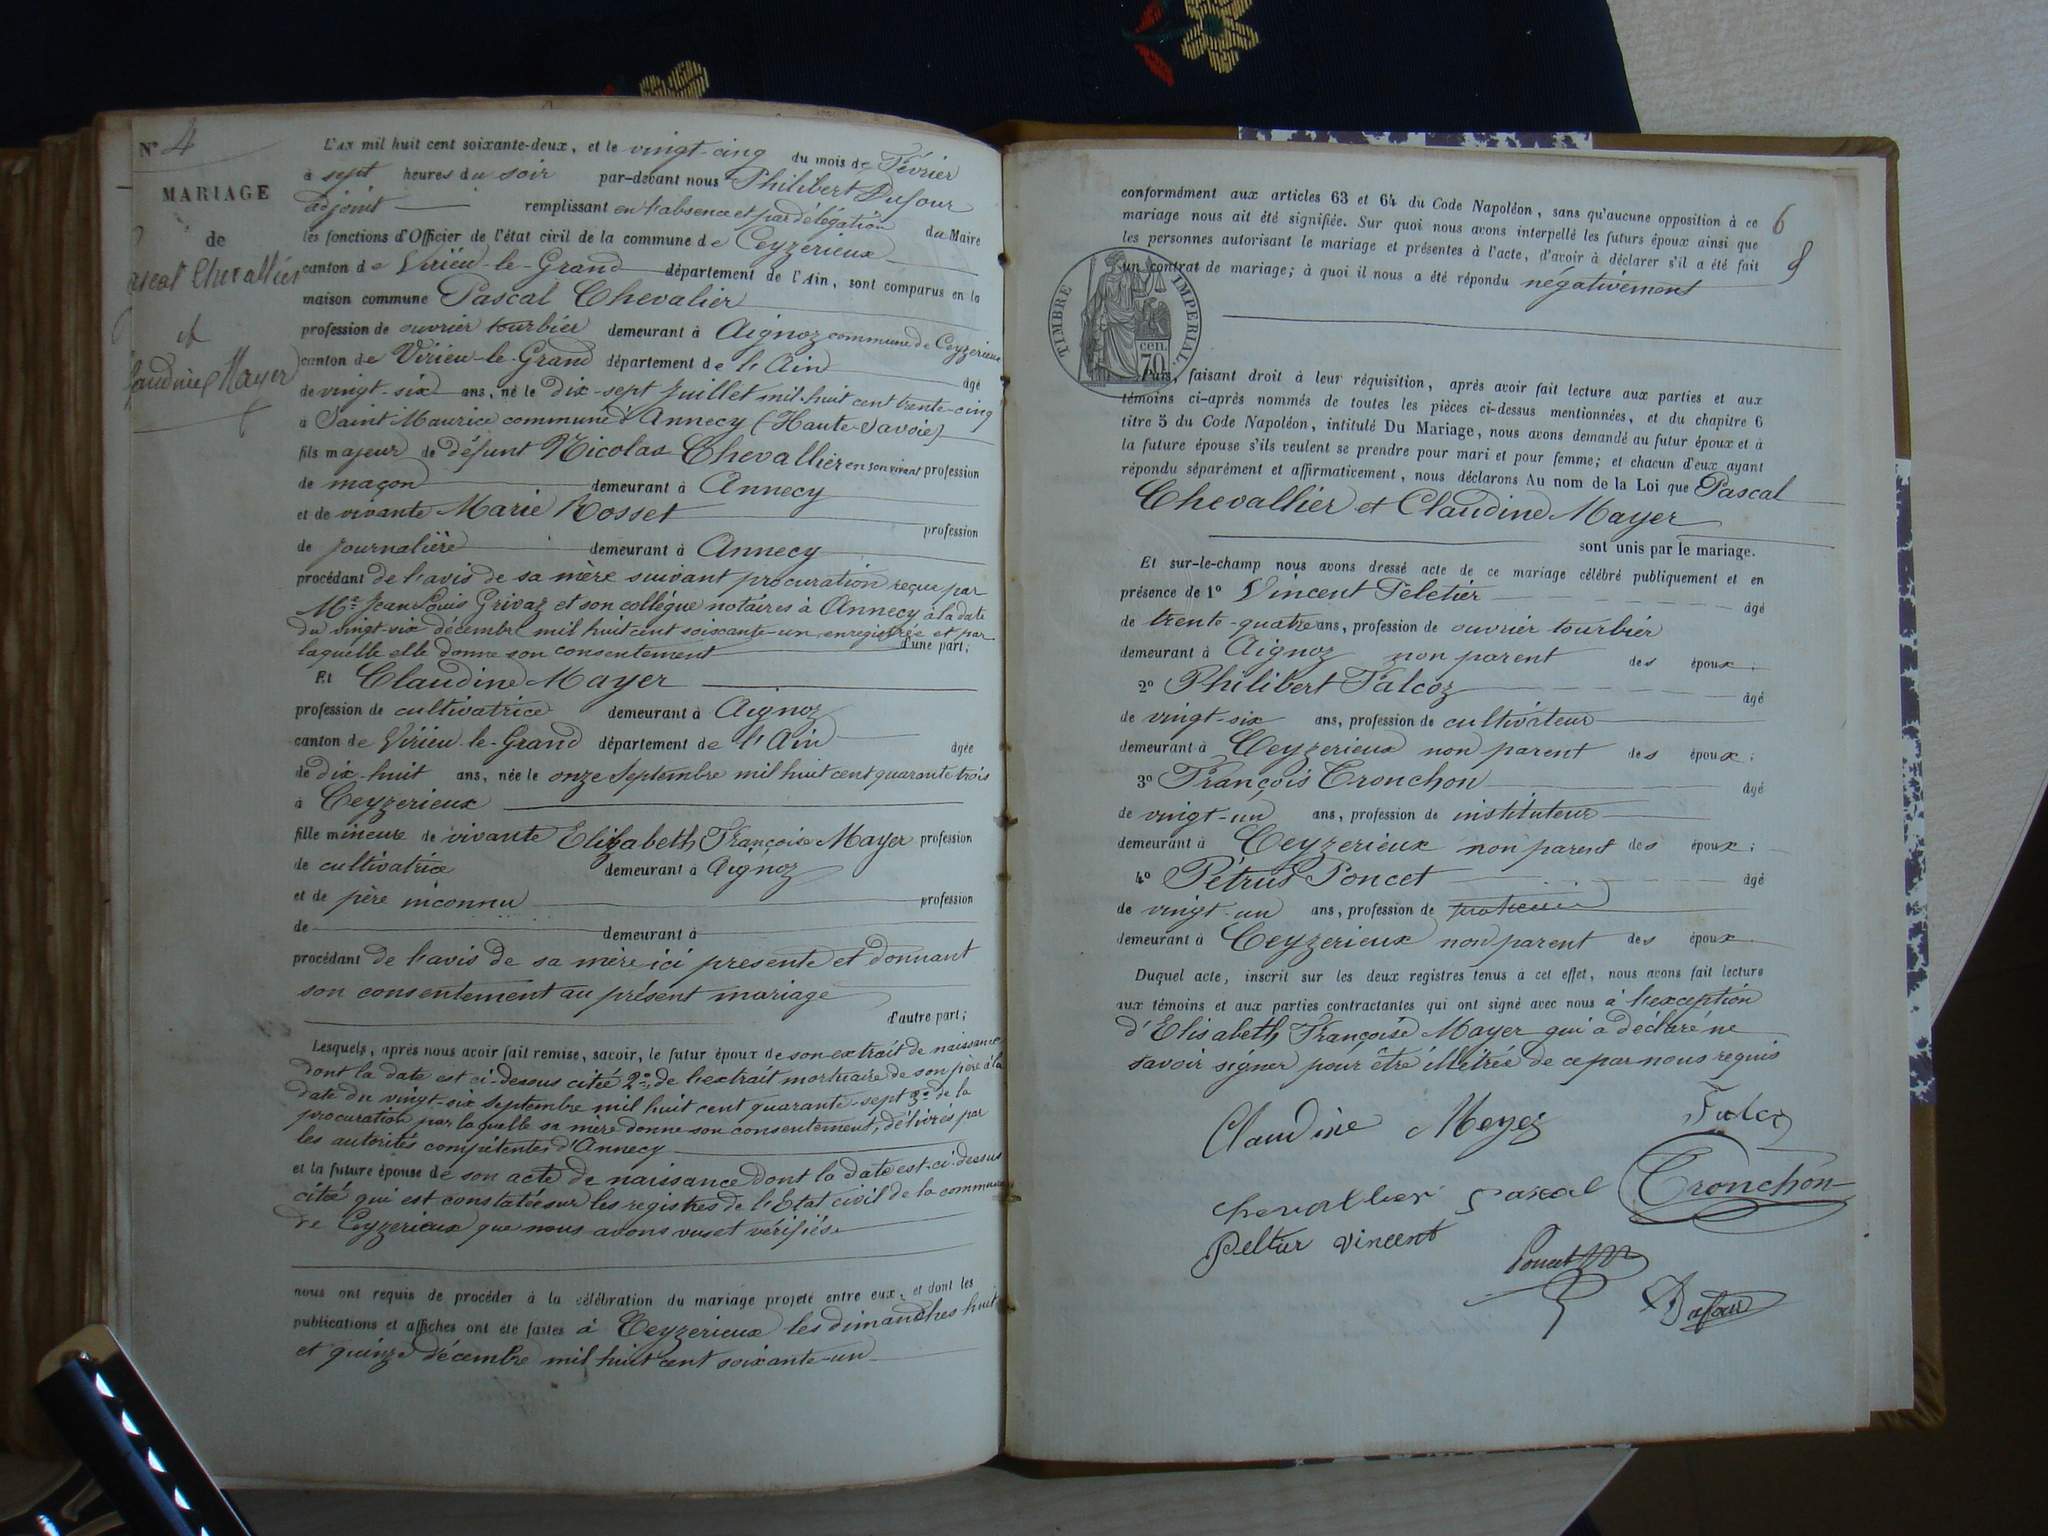 N° 4
MARIAGE
de
Pascal Chevallier
et
Claudine Mayer
L'AN mil huit cent soixante-deux, et le vingt-cinq du mois de Février
à sept heures du soir par-devant nous Philibert Dufour
adjoint remplissant en l'absence et par délégation du Maire
les fonctions d'Officier de l'état civil de la commune de Ceyzerieux
canton de Virieu-le-Grand département de l'Ain, sont comparus en la
maison commune Pascal Chevalier
profession de ouvrier tourbier demeurant à Aignoz commune de Ceyzerieux
canton de Virieu-le-Grand département de l'Ain âgé
de vingt-six ans, né le dix-sept Juillet mil huit cent trente-cinq
à Saint Maurice commune d'Annecy (Haute-Savoie)
fils majeur de défunt Nicolas Chevallier en son vivant profession
de maçon demeurant à Annecy
et de vivante Marie Rosset profession
de journalière demeurant à Annecy
procédant de l'avis de sa mère suivant procuration reçue par
Me Jean Louis Grivaz et son collégue notaires à Annecy à la date
du vingt-six décembre mil huit cent soixante-un enregistrée et par
laquelle elle donne son consentement d'une part;
Et Claudine Mayer
profession de cultivatrice demeurant à Aignoz
canton de Virieu-le-Grand département de l'Ain âgée
de dix-huit ans, née le onze Septembre mil huit cent quarante trois
à Ceyzerieux
fille mineure de vivante Elizabeth Françoise Mayer profession
de cultivatrice demeurant à Aignoz
et de père inconnu profession
de demeurant à
procédant de l'avis de sa mère ici presente et donnant
son consentement au présent mariage
d'autre part;
Lesquels, après nous avoir fait remise, savoir, le futur époux de son extrait de naissance
dont la date est ci-dessus citée 2° de l'extrait mortuaire de son père à la
date du vingt-six Septembre mil huit cent quarante-sept 3° de la
procuration par laquelle sa mère donne son consentement, délivrés par
les autorités compétentes d'Annecy
et la future épouse de son acte de naissance dont la date est ci-dessus
citée qui est constatée sur les registres de l'Etat civil de la commune
de Ceyzerieux que nous avons vu et vérifiés
nous ont requis de procéder à la célébration du mariage projeté entre eux, et dont les
publications et affiches ont été faites à Ceyzerieux les dimanches huit
et quinze décembre mil huit cent soixante-un
6
8
conformément aux articles 63 et 64 du Code Napoléon, sans qu'aucune opposition à ce
mariage nous ait été signifiée. Sur quoi nous avons interpellé les futurs époux ainsi que
les personnes autorisant le mariage et présentes à l'acte, d'avoir à déclarer s'il a été fait
un contrat de mariage; à quoi il nous a été répondu négativement
TIMBRE IMPERIAL.
cen.
70
Puis, faisant droit à leur réquisition, après avoir fait lecture aux parties et aux
témoins ci-après nommés de toutes les pièces ci-dessus mentionnées, et du chapitre 6
titre 5 du Code Napoléon, intitulé Du Mariage, nous avons demandé au futur époux et à
la future épouse s'ils veulent se prendre pour mari et pour femme; et chacun d'eux ayant
répondu séparément et affirmativement, nous déclarons Au nom de la Loi que Pascal
Chevallier et Claudine Mayer
sont unis par le mariage.
Et sur-le-champ nous avons dressé acte de ce mariage célébré publiquement et en
présence de 1° Vincent Peletier âgé
de trente-quatre ans, profession de ouvrier tourbier
demeurant à Aignoz non parent des époux;
2° Philibert Falcoz âgé
de vingt-six ans, profession de cultivateur
demeurant à Ceyzerieux non parent des époux;
3° François Tronchon âgé
de vingt-un ans, profession de instituteur
demeurant à Ceyzerieux non parent des époux;
4° Pétrus Poncet âgé
de vingt-un ans, profession de
demeurant à Ceyzerieux non parent des époux.
Duquel acte, inscrit sur les deux registres tenus à cet effet, nous avons fait lecture
aux témoins et aux parties contractantes qui ont signé avec nous à l'exception
d'Elisabeth Françoise Mayer qui a déclaré ne
savoir signer pour être illétrée de ce par nous requis
Claudine Meyer Falcoz
Chevallier Pascal Tronchon
Peltier Vincent
Poncet
Dufour